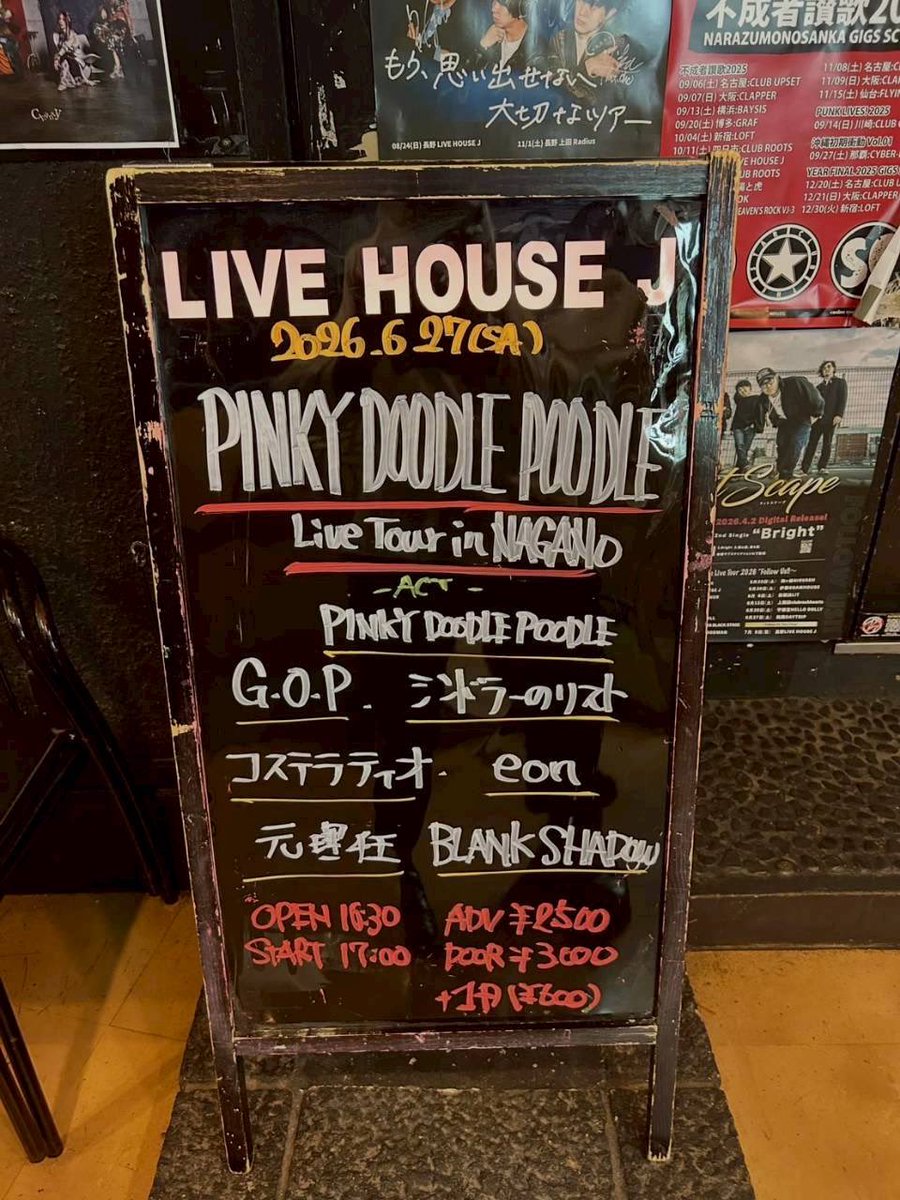 もう、思い出せない、
大切なツアー
08/24(日) 長野 LIVE HOUSE J 11/1(土) 長野 上田 Radius
不成者讃歌20
NARAZUMONOSANKA GIGS SC
不成者讃歌2025
09/06(土) 名古屋:CLUB UPSET
09/07(日) 大阪:CLAPPER
09/13(土) 横浜:BAYSIS
09/20(土) 博多:GRAF
10/04(土) 新宿:LOFT
10/11(土) 四日市:CLUB ROOTS
LIVE HOUSE J
CLUB ROOTS
陽と虎
OK
HEAVEN'S ROCK VJ-3
11/08(土) 名古屋:CL
11/09(日) 大阪:CLAPP
11/15(土) 仙台:FLYIN
PUNKLIVES 2025
09/14(日) 川崎:CLUB
沖縄初期衝動 Vol.01
09/27(土) 那覇:CYBER-
YEAR FINAL 2025 GIGS
12/20(土) 名古屋:CLUB U
12/21(日) 大阪:CLAPPER
12/30(火) 新宿:LOFT
LIVE HOUSE J
2026.6 27(SA)
PINKY DOODLE POODLE
Live Tour in NAGANO
-ACT-
PINKY DOODLE POODLE
G.O.P. シンドラーのリスト
コステラティオ. eon
元 狂 BLANK SHADOW
OPEN 16:30 ADV ¥2500
START 17:00 DOOR ¥3.000
+1D (¥600)
t Scape
2026.4.2 Digital Release!
2nd Single "Bright"
Live Tour 2026 "Follow Us!!~